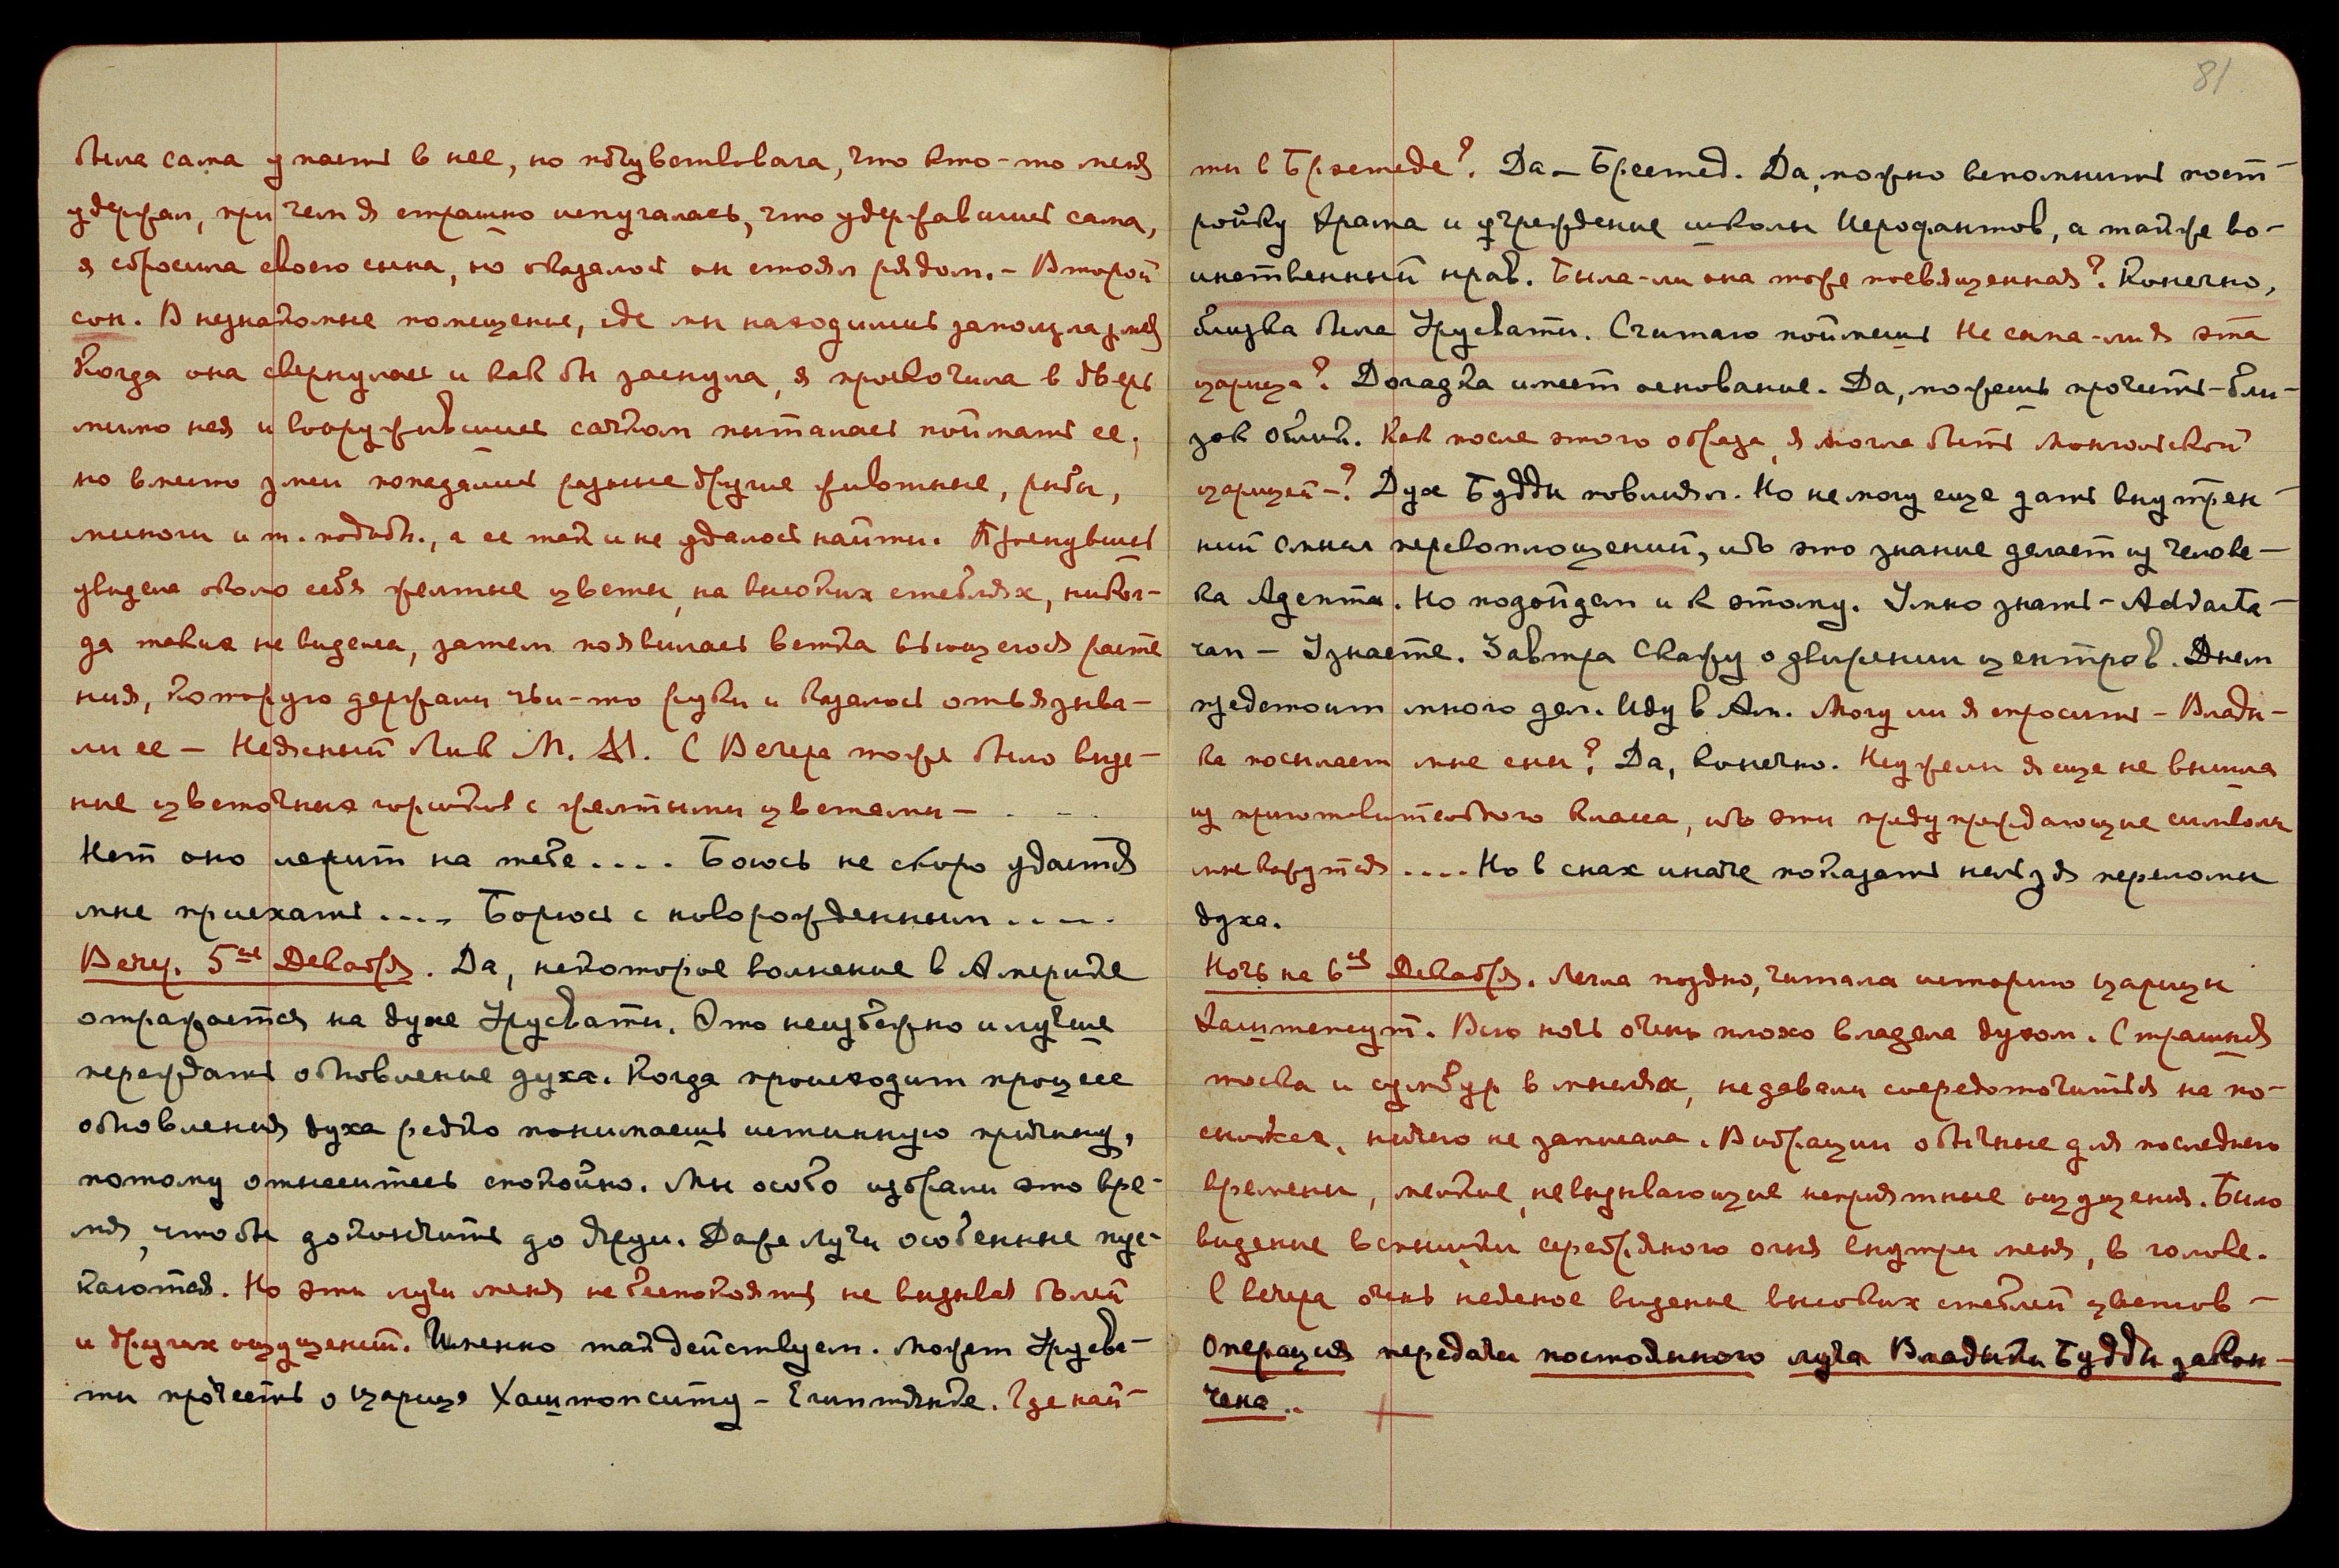 была сама упасть в нее, но почувствовала, что кто-то меня
удержал, при чем я страшно испугалась, что удержавшись сама,
я сбросила своего сына, но оказалось он стоял рядом. - Второй
сон. В незнакомые помещение, где мы находились заползла змея
Когда она свернулась и как бы заснула, я проскочила в дверь
мимо нея и вооружившись сачком пыталась поймать ее,
но вместо змеи попадались разные другие животные, рыбы,
миноги и т. подобн., а ее так и не удалось найти. Проснувшись
увидела около себя желтые цветы, на высоких стеблях, никог-
да таких не видела, затем появилась ветка вьющегося расте
ния, которую держали чьи-то руки и казалось отвязыва-
ли ее - Неясный Лик М. М. С Вечера тоже было виде-
ние цветочных горшков с желтыми цветами - . - .
Нет оно лежит на тебе .... Боюсь не скоро удастся
мне приехать .... Борюсь с новорожденным ....
Вечер. 5ое Декабря. Да, некоторое волнение в Америке
отражается на духе Урусвати. Это неизбежно и лучше
переждать обновление духа. Когда происходит процесс
обновления духа редко понимаешь истинную причину,
потому отнеситесь спокойно. Мы особо избрали это вре-
мя, чтобы докончить до Яруи. Даже лучи особенные пус-
каются. Но эти лучи меня не беспокоят не вызывая болей
и других ощущений. Именно так действуем. Может Урусва-
ти прочесть о царице Хаштопситу - Египтянке. Где най-
81
ти в Брэстеде? Да - Брестед. Да, можно вспомнить пост-
ройку храма и учреждение школы Иерофантов, а также во-
инственный нрав. Была-ли она тоже посвященная? Конечно,
близка была Урусвати. Считаю поймешь Не сама-ли я эта
царица? Догадка имеет основание. Да, можешь прочесть - бли-
зок облик. Как после этого образа, я могла быть Монгольской
царицей -? Дух Будды повлиял. Но не могу еще дать внутрен-
ний смысл перевоплощений, ибо это знание делает из челове-
ка Адепта. Но подойдем и к этому. Умно знать - Advaita-
чап - Узнаете. Завтра Скажу о движении центров. Днем
предстоит много дел. Иду в Ам. Могу ли я спросить - Влады-
ка посылает мне сны? Да, конечно. Неужели я еще не вышла
из приготовительного класса, ибо эти предупреждающие символы
мне кажутся .... Но в снах иначе показать нельзя переломы
духа.
Ночь на 6ое Декабря. Легла поздно, читала историю царицы
Хаштепсут. Всю ночь очень плохо владела духом. Страшная
тоска и сумбур в мыслях, не давали сосредоточиться на по-
сылках, ничего не записала. Вибрации обычные для последнего
времени, мелкие, невызывающие неприятные ощущения. Было
видение вспышки серебряного огня внутри меня, в голове.
С вечера очень неясное видение высоких стеблей цветов -
Операция передачи постоянного луча Владыки Будды закон-
чена.